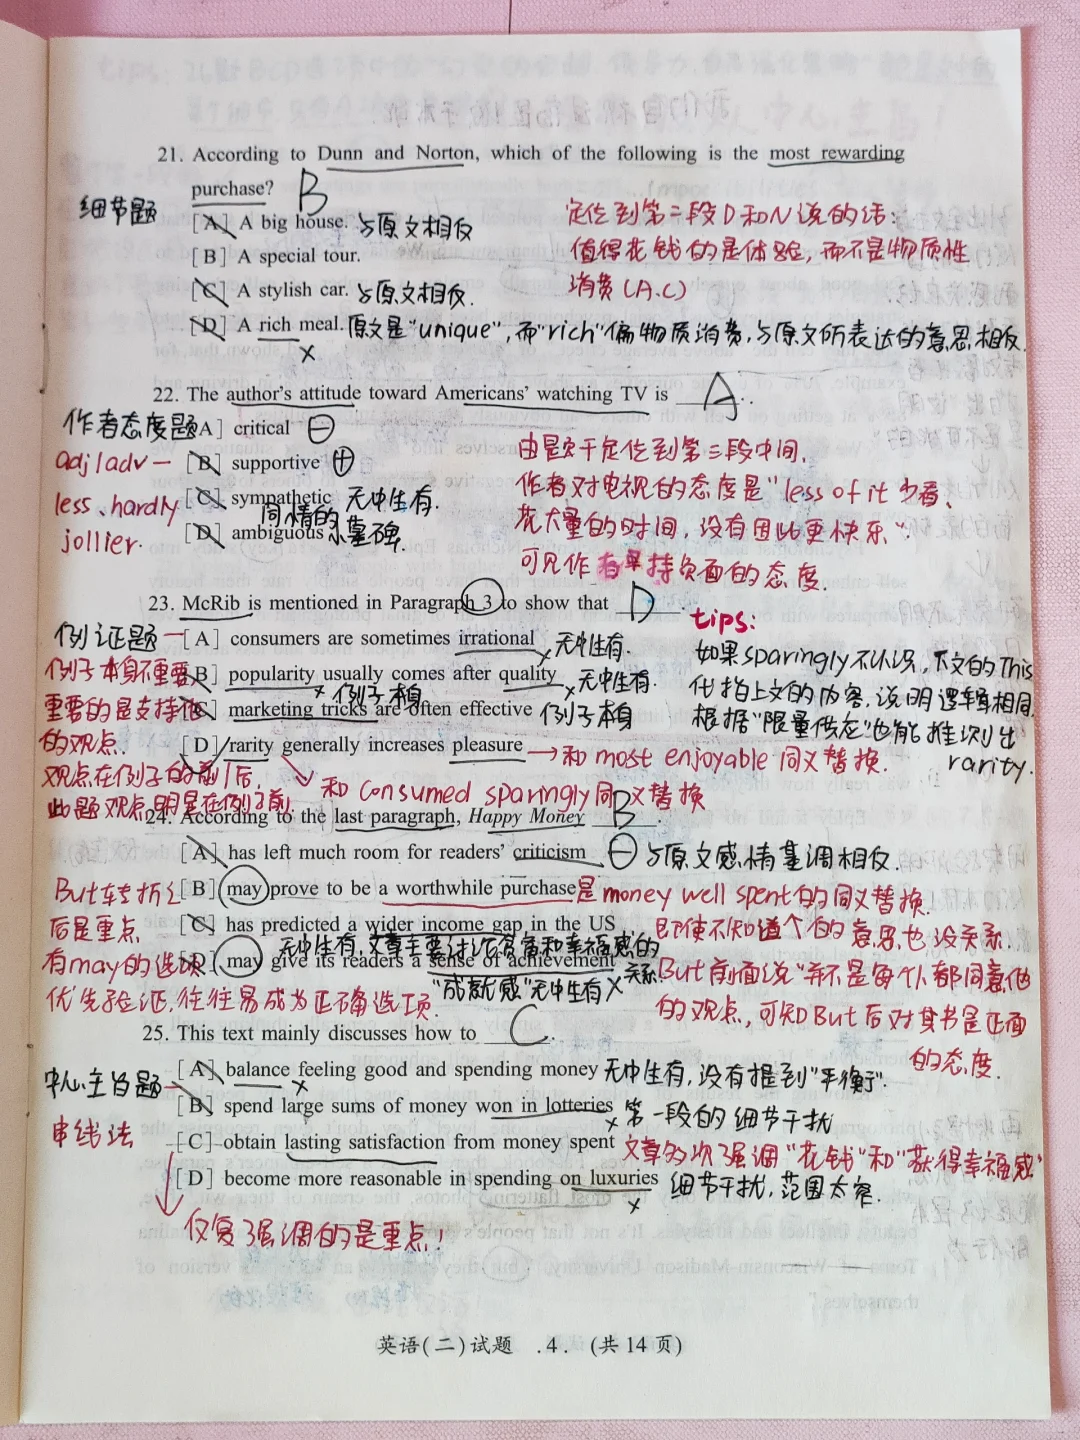 21. According to Dunn and Norton, which of the following is the most rewarding
purchase? B
细节题
[A] A big house. 与原文相反
[B] A special tour.
[C] A stylish car. 与原文相反.
[D] A rich meal. 原文是"unique",而"rich"偏物质消费,与原文所表达的意思相反.
定位到第二段D和N说的话:
值得花钱的是体验,而不是物质性
消费(A、C)
22. The author's attitude toward Americans' watching TV is A.
作者态度题
[A] critical ⊖
adj/adv — [B] supportive ⊕
less、hardly [C] sympathetic 无中生有.
同情的
jollier. [D] ambiguous 不靠碑.
由题干定位到第三段中间,
作者对电视的态度是"less of it 少看、
花大量的时间,没有因此更快乐"
可见作者持负面的态度.
23. McRib is mentioned in Paragraph 3 to show that D.
例证题 — [A] consumers are sometimes irrational 无中生有.
例子本身不重要 [B] popularity usually comes after quality 无中生有.
例子本身
重要的是支持他 [C] marketing tricks are often effective 例子本身
的观点. [D] rarity generally increases pleasure → 和 most enjoyable 同义替换.
和 consumed sparingly 同义替换
观点在例子的前/后,
此题观点明显在例子前
tips:
如果sparingly不认识,下文的This
代指上文的内容,说明逻辑相同.
根据"限量供应"也能推测出
rarity.
24. According to the last paragraph, Happy Money B
[A] has left much room for readers' criticism. ⊖ 与原文感情基调相反.
But转折之 [B] may prove to be a worthwhile purchase 是money well spent的同义替换.
后是重点 [C] has predicted a wider income gap in the US
无中生有,文章主要讨论富裕和幸福感的
关系.
有may的选项 [D] may give its readers a sense of achievement
"成就感"无中生有
优先验证,往往易成为正确选项.
即使不知道这个词的意思也没关系.
But前面说"并不是每个人都同意他
的观点,可知But后对其书是正面
的态度.
25. This text mainly discusses how to C.
中心主旨题 — [A] balance feeling good and spending money 无中生有,没有提到"平衡".
[B] spend large sums of money won in lotteries 第一段的细节干扰
串线法 [C] obtain lasting satisfaction from money spent 文章多次强调"花钱"和"获得幸福感"
[D] become more reasonable in spending on luxuries 细节干扰,范围太窄.
反复强调的是重点!
英语(二)试题 .4. (共14页)